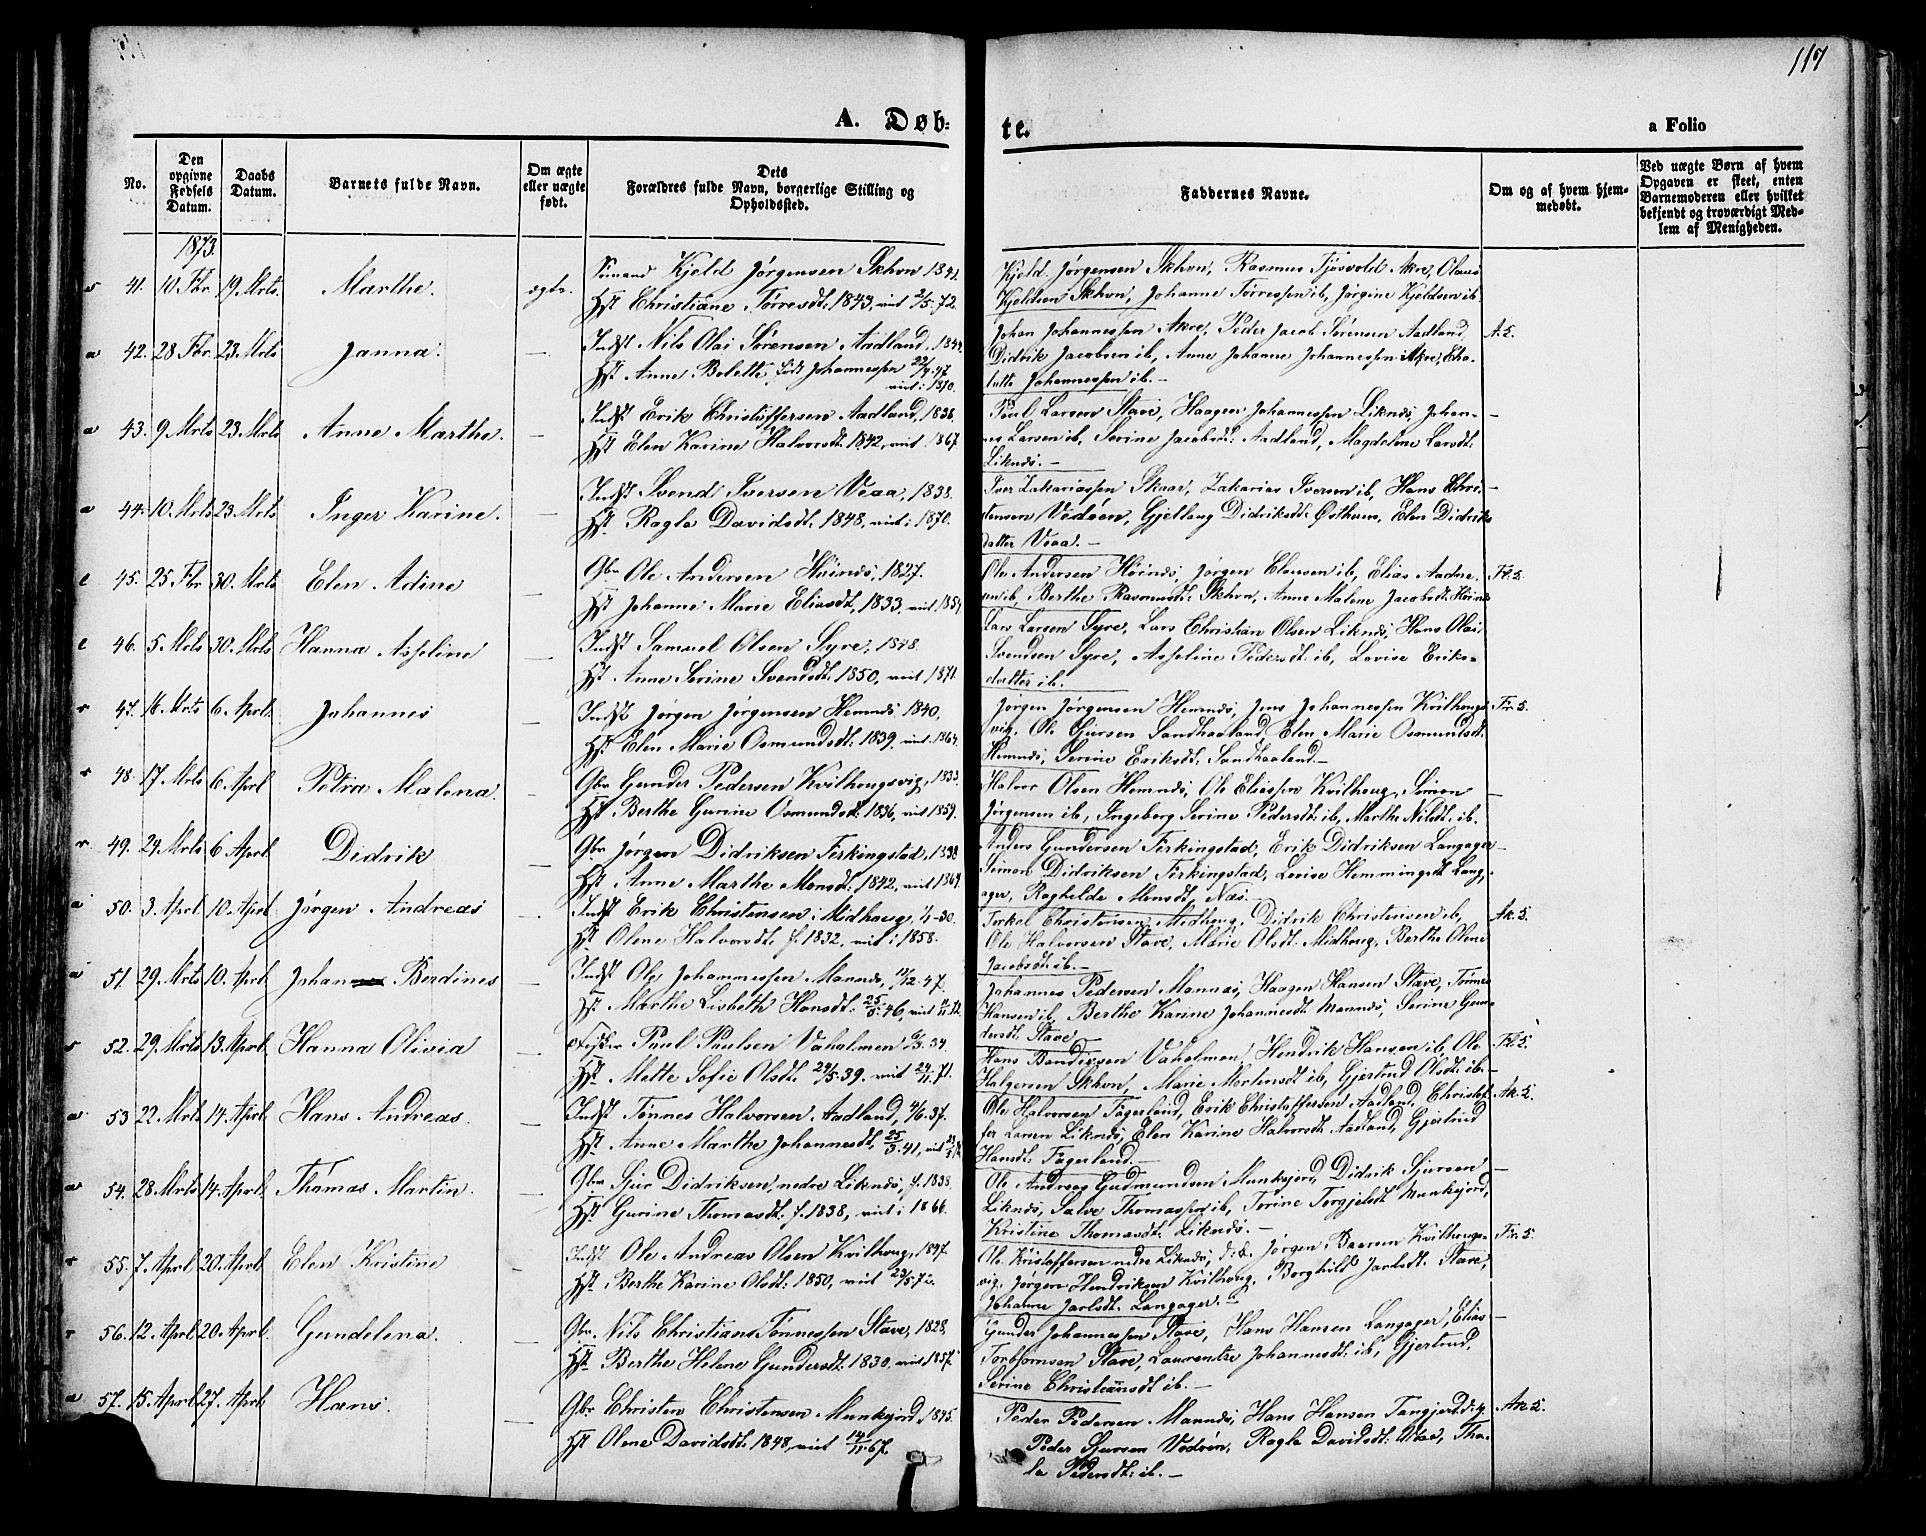 117
A. Døb=
te.
a Folio
No.
Den opgivne Fødsels Datum.
Daabs Datum.
Barnets fulde Navn.
Om ægte eller uægte født.
Dets Forældres fulde Navn, borgerlige Stilling og Opholdssted.
Faddernes Navne.
Om og af hvem hjem-medøbt.
Ved uægte Børn af hvem Opgaven er skeet, enten Barnemoderen eller hvilket bekjendt og troværdigt Med-lem af Menigheden.
1873.
41. 10. Fbr 19. Mrts. Marthe. ægte. Sømand Kjeld Jørgensen Skhvn 1841.
Hst Christiane Tørresdt: 1843, viet 2/5.72.
Kjeld Jørgensen Skhvn, Rasmus Tjøsvold Akre, Olaus
Kjeldsen Skhvn, Johanne Tørressen ib, Jørgine Kjeldsen ib.
42. 28 Fbr. 23. Mrts Janna. — Indst Nils Olai Sørensen Aadland, 1844.
Hst Anne Bolette født Johannessen 22/4.47
viet: 1870.
Johan Johannessen Akre, Peder Jacob Sørensen Aadland, A.S.
Didrik Jacobsen ib, Anne Johanne Johannessen Akre, Cha-
lotte Johannessen ib. —
43. 9. Mrts 23. Mrts Anne Marthe. — Indst Erik Christoffersen Aadland, 1838.
Hst Elen Karine Halvorsdt: 1842, viet 1867.
Poul Larsen Stave, Haagen Johannessen Liknæs, Johan- —
nes Larsen ib, Serine Jacobsdt: Aadland, Magdelene Larsdt:
Liknæs. —
44. 10. Mrts 23. Mrts Inger Karine. — Indst Svend Iversen Veaa, 1838.
Hst Ragla Davidsdt: 1848, viet: 1870.
Iver Zakariassen Skaar, Zakarias Iversen ib, Hans Chri- —
stensen Vedøen, Gjellaug Didriksdt: Østhuus, Elen Didriks
datter Veaa. —
45. 25. Fbr 30. Mrts Elen Adine — Gbr Ole Andersen Høinæs, 1827.
Hst Johanne Marie Eliasdt, 1833, viet 1854.
Ole Andersen Høinæs, Jørgen Clausen ib, Elias Aadne-
sen ib, Berthe Rasmusdt: Skhvn, Anne Malene Jacobsdt: Høinæs
46. 5. Mrts 30. Mrts Hanna Asseline — Indst Samuel Olsen Syre, 1848.
Hst Anne Serine Svendsdt: 1850, viet 1871.
Lars Larsen Syre, Lars Christian Olsen Liknæs, Hans Olai
Svendsen Syre, Asseline Pedersdt: ib, Lovise Eriks-
datter ib.
47. 16. Mrts 6. April. Johannes — Indst Jørgen Jørgensen Hemnæs, 1840,
Hst Elen Marie Osmundsdt: 1839, viet 1864.
Jørgen Jørgensen Hemnæs, Jens Johannessen Kvilhougs-
vig, Ole Sjursen Sandhaaland, Elen Marie Osmundsdt:
Hemnæs, Serine Eriksdt: Sandhaaland. —
48. 17. Mrts 6. Aprl Petra Malena. — Gbr Gunder Pedersen Kvilhougsvig, 1833
Hst Berthe Gurine Osmundsdt: 1836, viet 1859.
Halvor Olsen Hemnæs, Ole Eliassen Kvilhoug, Simon —
Jørgensen ib, Ingeborg Serine Pedersdt: ib, Marthe Nilsdt: ib.
49. 24 Mrts 6 April Didrik — Gbr Jørgen Didriksen Ferkingstad, 1838
Hst Anne Marthe Monsdt: 1842, viet 1864.
Anders Gundersen Ferkingstad, Erik Didriksen Langager —
Simon Didriksen Ferkingstad, Lovise Hemmingsdt Lang-
ager, Raghilde Monsdt, Næs. —
50. 3. Aprl 10. Aprl Jørgen Andreas — Indst Erik Christensen Midhaug,
Hst Olene Halvorsdt: f. 1832, viet: 1858.
Torkel Christensen Midhoug, Didrik Christensen ib, Ak.S.
Ole Halvorsen Stave, Marie Olsdt: Midhoug, Berthe Olene
Jacobsdt: ib. —
51. 29. Mrts 10. Aprl Johan Berdines — Indst Ole Johannessen Mannæs, 12/12.47.
Hst Marthe Lisbeth Hansdt:
Johannes Pedersen Mannæs, Haagen Hansen Stave, Tønnes
Hansen ib, Berthe Karine Johannesdt: Mannæs, Serine Gun-
dersdt: Stave
52. 29. Mrts 13. Aprl Hanna Olivia — Fisker Paul Paulsen Vaholmen
Hst. Mette Sofie Olsdt. 24/5.39. viet 24/11.71.
Hans Bendixsen Vaholmen, Hendrik Hansen ib, Ole
Halgersen Skhvn, Marie Mortensdt ib, Gjertrud Olsdt: ib. —
53 22. Mrts 14. Aprl Hans Andreas. — Indst Tønnes Halvorsen Aadland, 4/6.37.
Hst. Anne Marthe Johannesdt, 25/3.41, viet
Ole Halvorsen Fagerland, Erik Christoffersen Aadland, Christof- Ak.S.
fer Larsen Liknæs, Elen Karine Halvorsdt: Aadland, Gjertrud
Hansdt: Fagerland. —
54. 28. Mrts 14. April. Thomas Martin. — Gbr Sjur Didriksen, nedre Liknæs, f. 1838,
Hst. Gurine Thomasdt: f. 1838, viet: 1866.
Ole Andreas Gudmundsen Munkejord, Didrik Sjursen —
Liknæs, Salve Thomassen ib, Torine Torgjelsdt Munkejord,
Kristine Thomasdt: Liknæs. —
55. 7. April 20. April Elen Kristine — Indst Ole Andreas Olsen Kvilhoug, 1847.
Hst. Berthe Karine Olsdt: 1850, viet
Ole Kristoffersen nedre Liknæs, Jørgen Baarsen Kvilhougs-
vig, Jørgen Hendriksen Kvilhoug, Borghild Jarlsdt: Stave,
Johanne Jarlsdt: Langager. —
56. 12. April 20. April. Gundelena. — Gbr. Nils Christian Tønnessen Stave, 1828,
Hst. Berthe Helene Gundersdt: 1830. viet 1857.
Gunder Johannessen Stave, Hans Hansen Langager, Elias —
Torbjørnsen Stave, Laurentze Johannesdt: ib, Gjertrud
Serine Christiansdt ib. —
57. 15. Aprl 27. Aprl Hans. — Gbr Christen Christensen Munkejord, 1845.
Hst Olene Davidsdt: 1848, viet 14/11.67.
Peder Pedersen Mannæs, Hans Hansen Tangjerd. d: y. Ak.S.
Peder Sjursen Vedøen, Ragla Davidsdt: Veaa, Tho-
le Pedersdt: ib. —